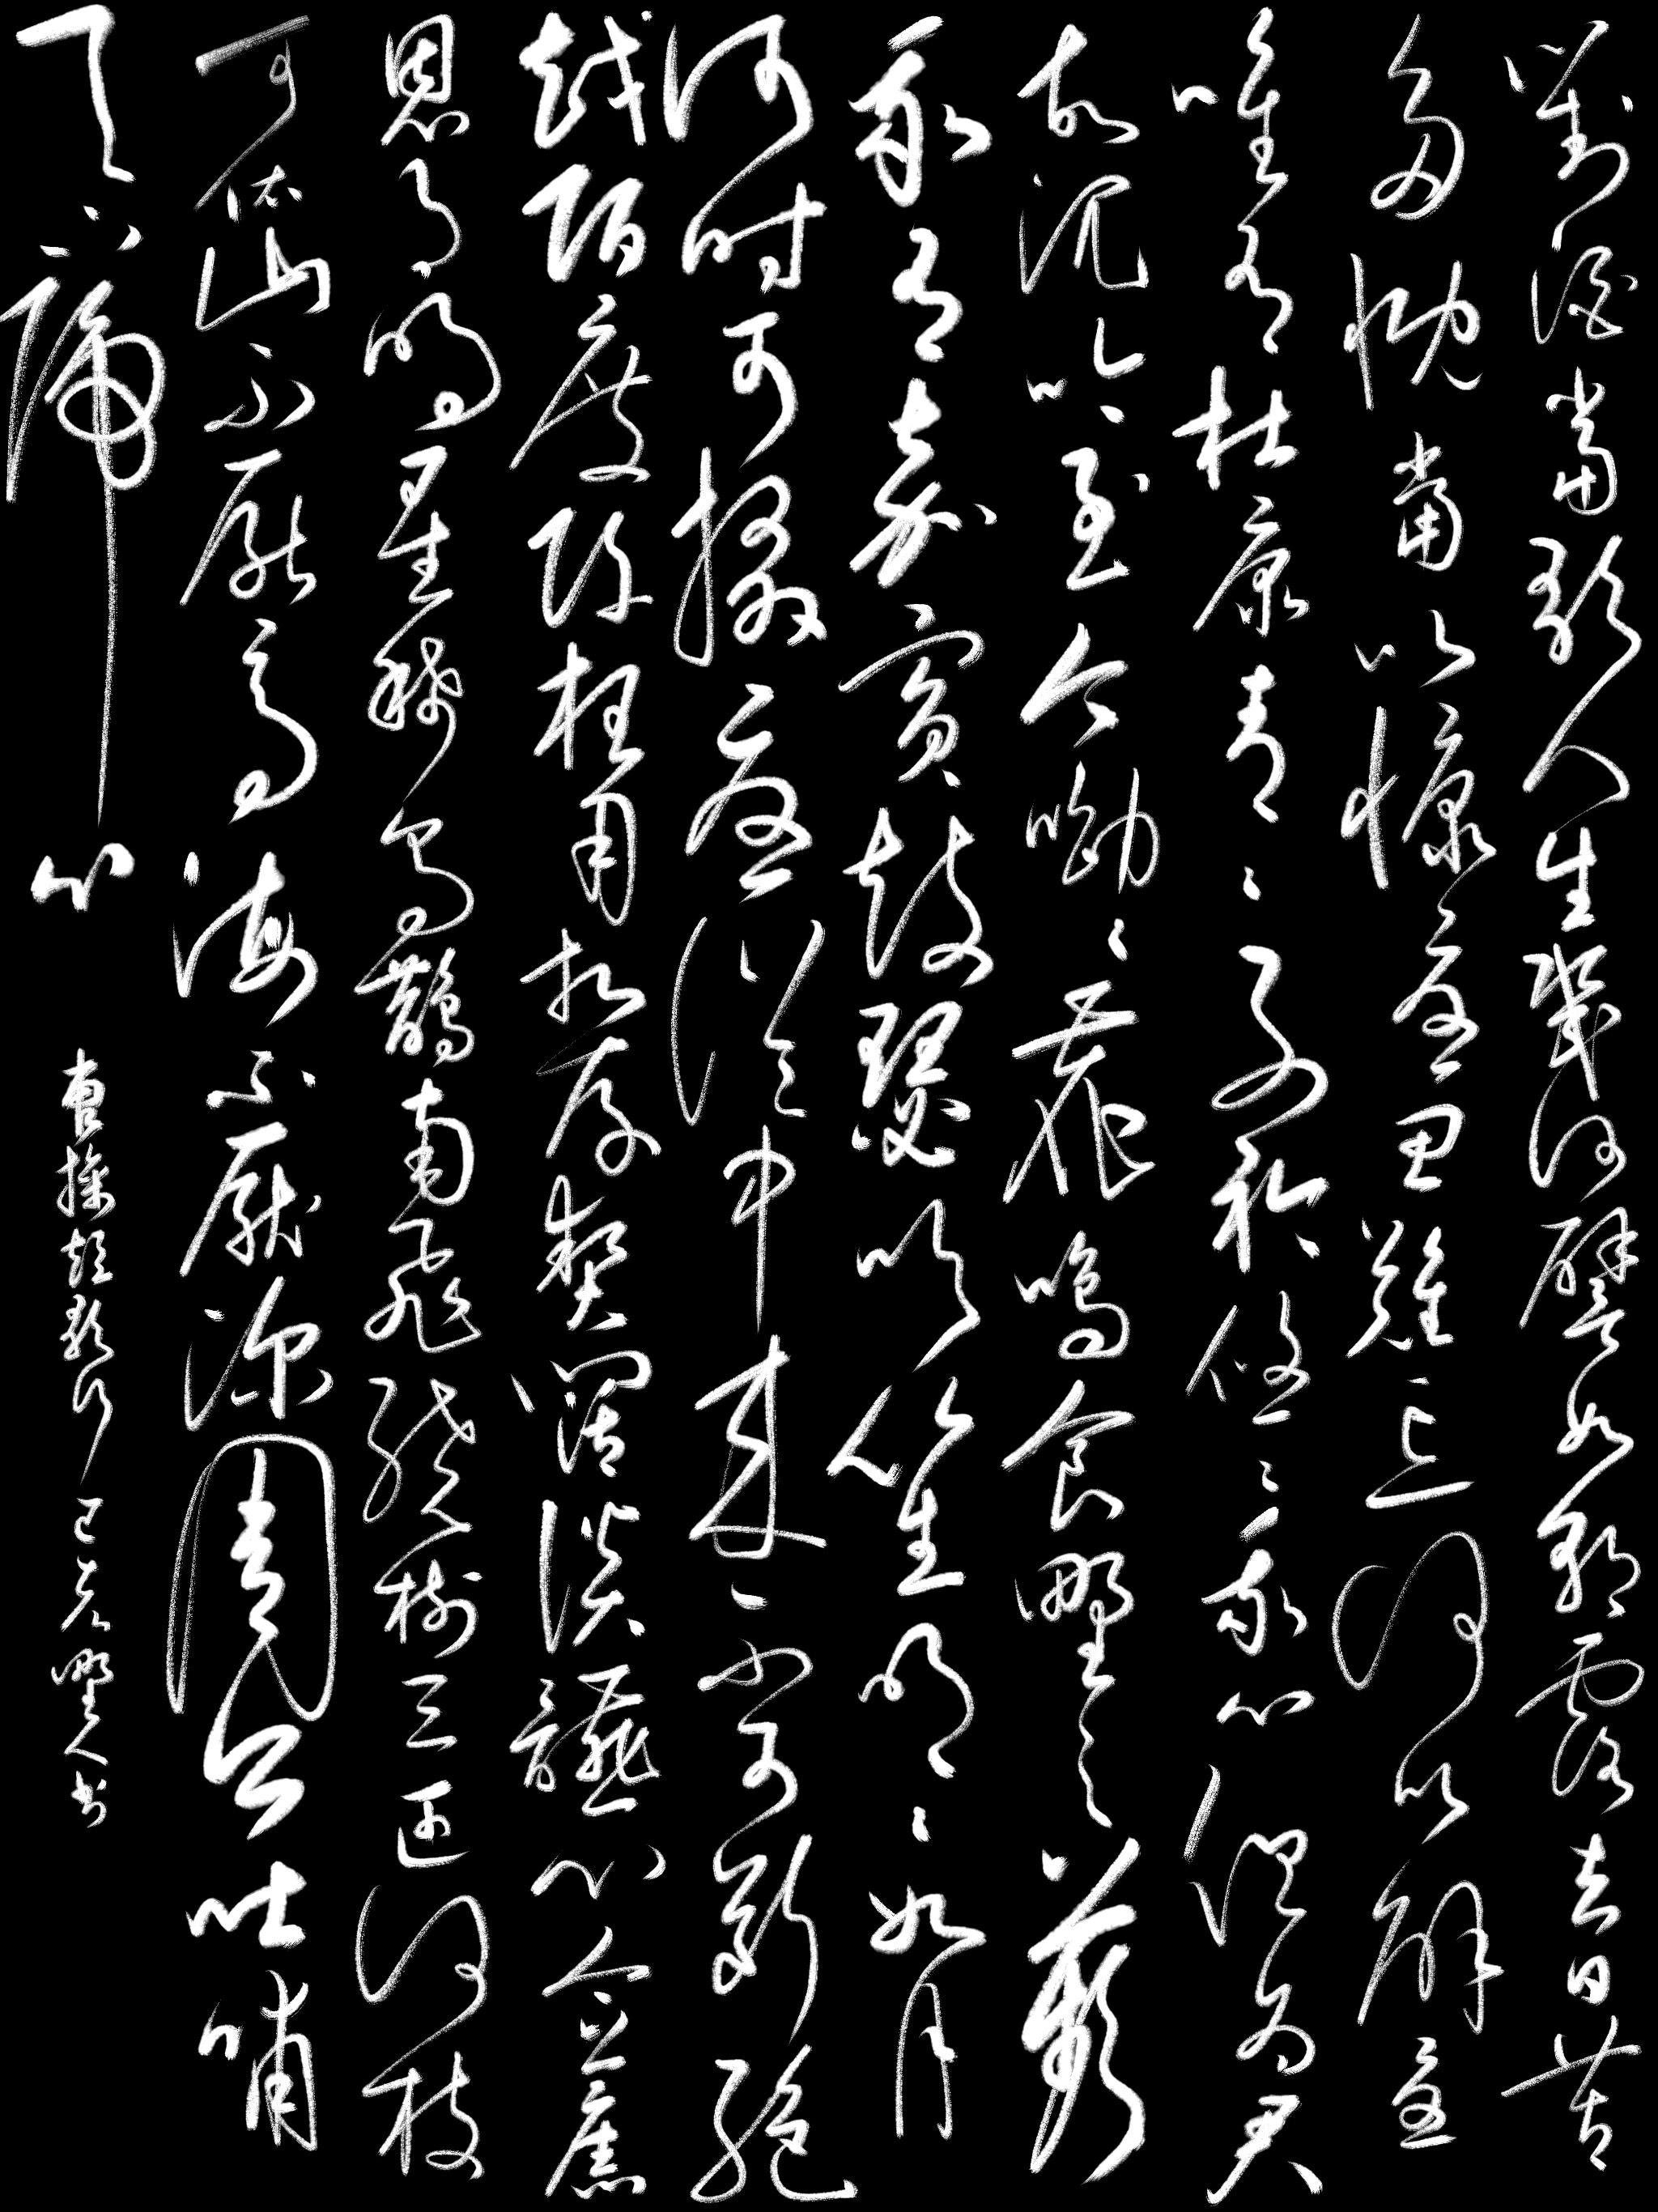 對酒當歌人生幾何譬如朝露去日苦
多慨當以慷憂思難忘何以解憂
唯有杜康青々子衿悠々我心但為君
故沉吟至今呦々鹿鳴食野之蘋
我有嘉賓鼓瑟吹笙明々如月
何時可掇憂從中來不可斷絕
越陌度阡枉用相存契闊談讌心念舊
恩月明星稀烏鵲南飛繞樹三匝何枝
可依山不厭高海不厭深周公吐哺
天下歸心 曹操短歌行 己亥野人書